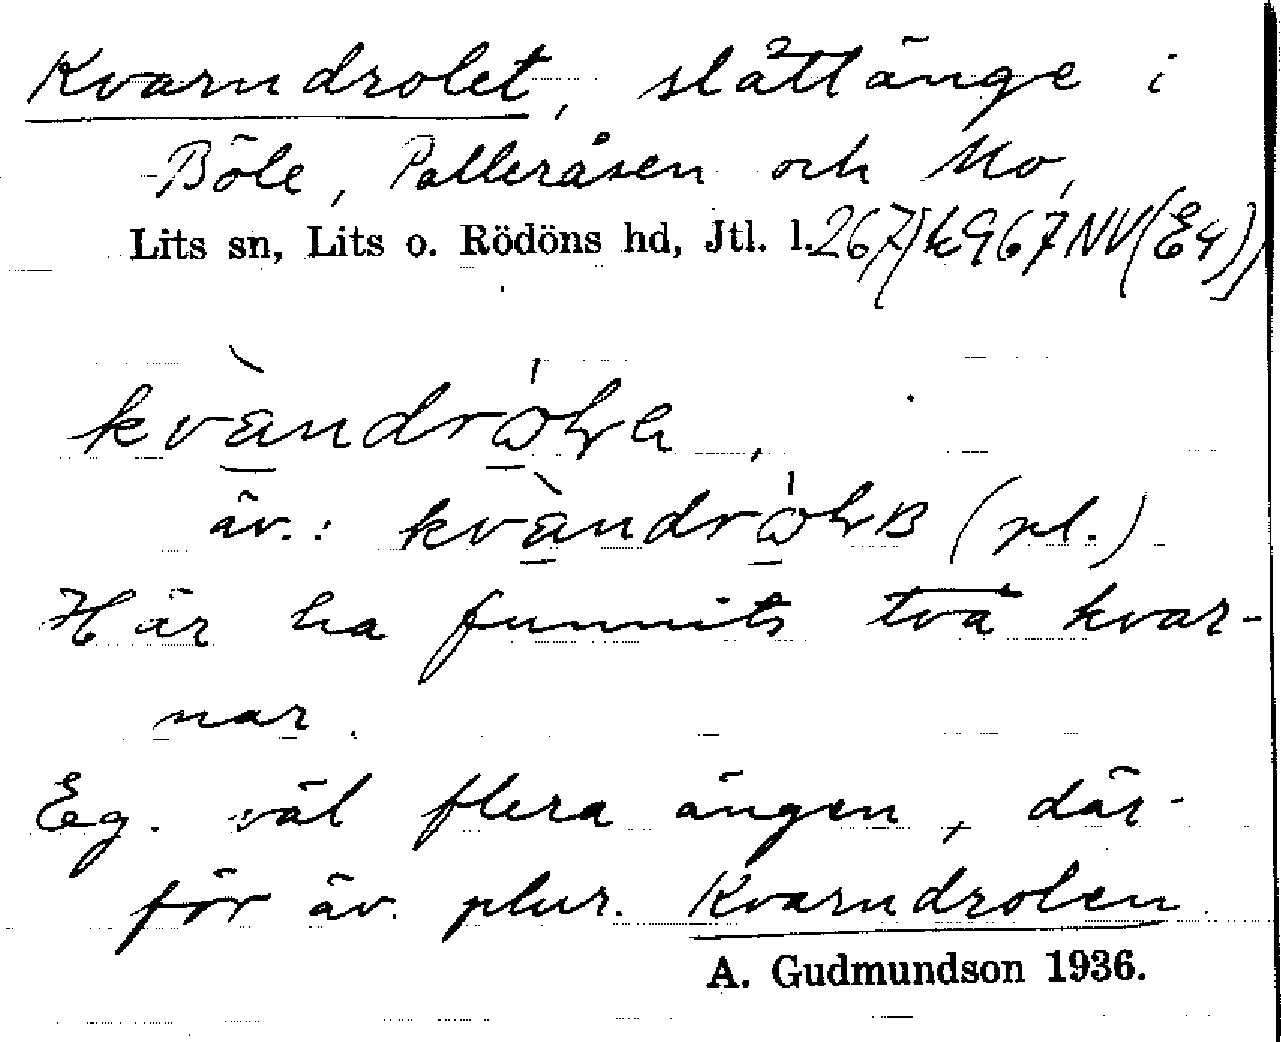 Kvarndrolet, slåttänge i
Böle, Polleråsen och Mo,
Lits sn, Lits o. Rödöns hd, Jtl. l. 267
av.: (pl.)
Här ha funnits två kvar-
nar.
Eg. väl flera ängen, där-
för äv. plur. Kvarndrolen
A. Gudmundson 1936.